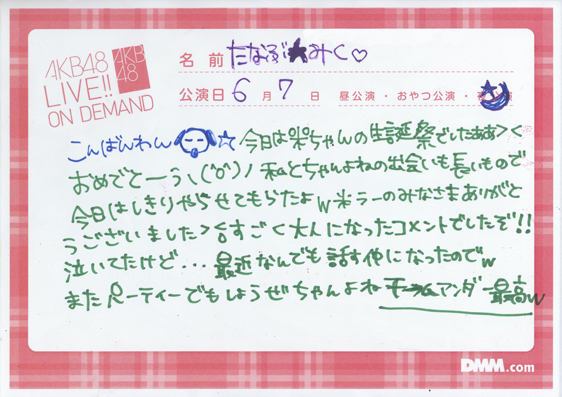 AKB48
LIVE!!
ON DEMAND
AKB
48
名前 たなぶ★みく♡
公演日 6月7日 昼公演・おやつ公演・
こんばんわん☆今日は米ちゃんの生誕祭でしたああ><
おめでとーう\(^o^)/私とちゃんよねの出会いも長いもので
今日はしきりやらせてもらたよw米ラーのみなさまありがと
うございました>< すごく大人になったコメントでしたぞ!!
泣いてたけど...最近なんでも話す仲になったのでw
またパーティーでもしようぜちゃんよね アンダー最高w
DMM.com